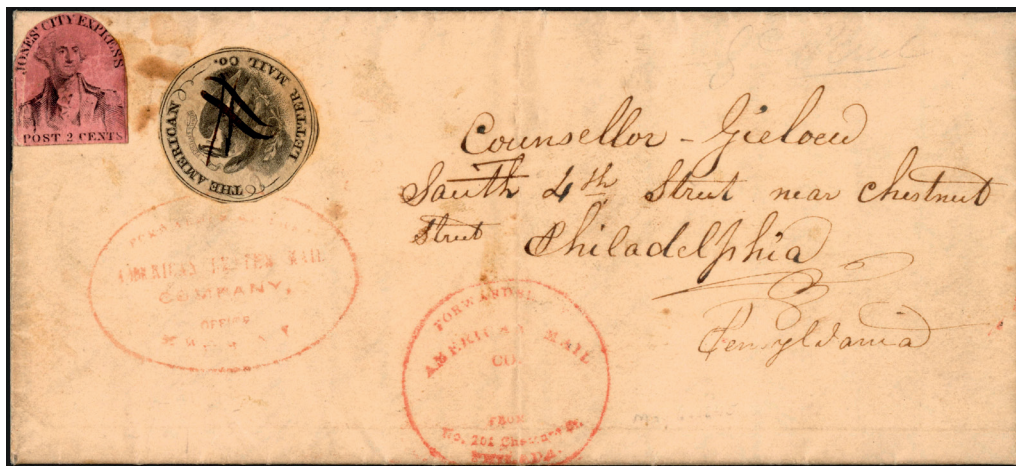 JONES' CITY EXPRESS
POST 2 CENTS
THE AMERICAN LETTER MAIL CO.
Counsellor - Gieloew
South 4th Street near Chestnut
Street Philadelphia
Pensylvania
AMERICAN LETTER MAIL
COMPANY,
OFFICE
N. Y.
FORWARDED
AMERICAN MAIL
CO.
FROM
No. 201 Chesnut St.
PHILADA.